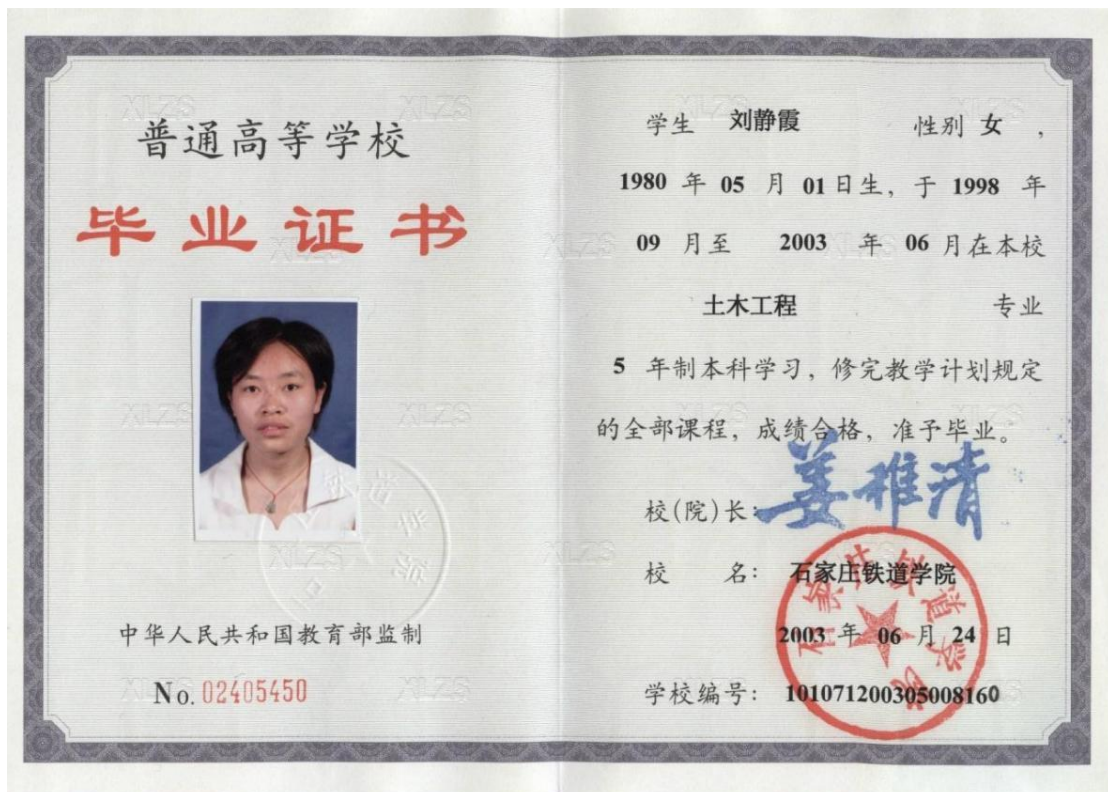 普通高等学校
毕业证书
中华人民共和国教育部监制
No. 02405450
学生 刘静霞 性别 女，
1980 年 05 月 01 日生，于 1998 年
09 月至 2003 年 06 月在本校
土木工程 专业
5 年制本科学习，修完教学计划规定
的全部课程，成绩合格，准予毕业。
校(院)长：姜稚清
校 名：石家庄铁道学院
2003 年 06 月 24 日
学校编号：101071200305008160
石家庄铁道学院
XLZS